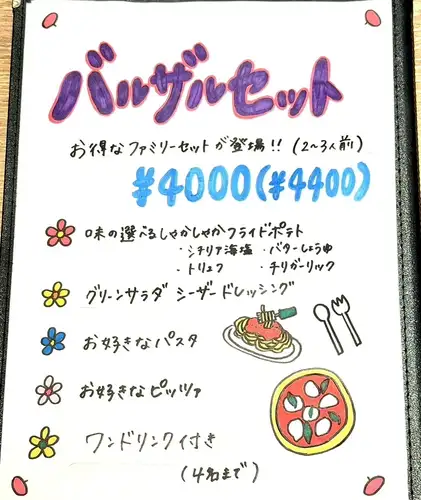 バルザルセット
お得なファミリーセットが登場!! (2~3人前)
¥4000(¥4400)
味の選べるしゃかしゃかフライドポテト
・シチリア海塩 ・バターしょうゆ
・トリュフ ・チリガーリック
グリーンサラダ シーザードレッシング
お好きなパスタ
お好きなピッツァ
ワンドリンク付き
(4名まで)